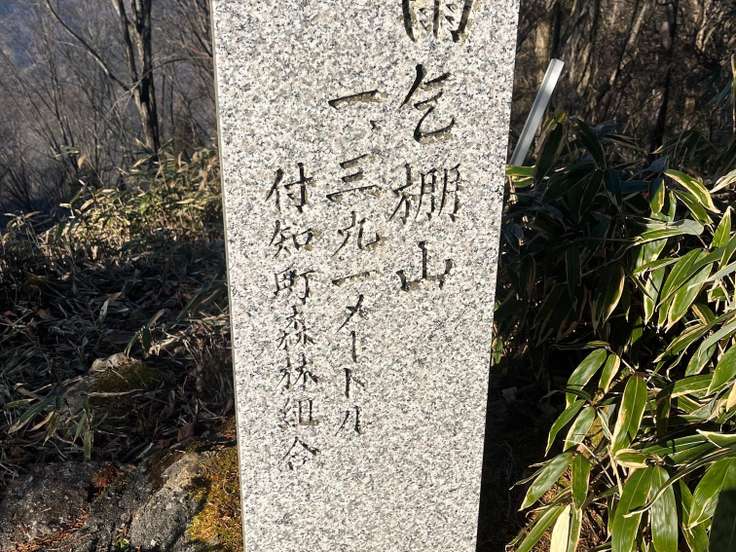 雨乞棚山
一、三九一メートル
付知町森林組合